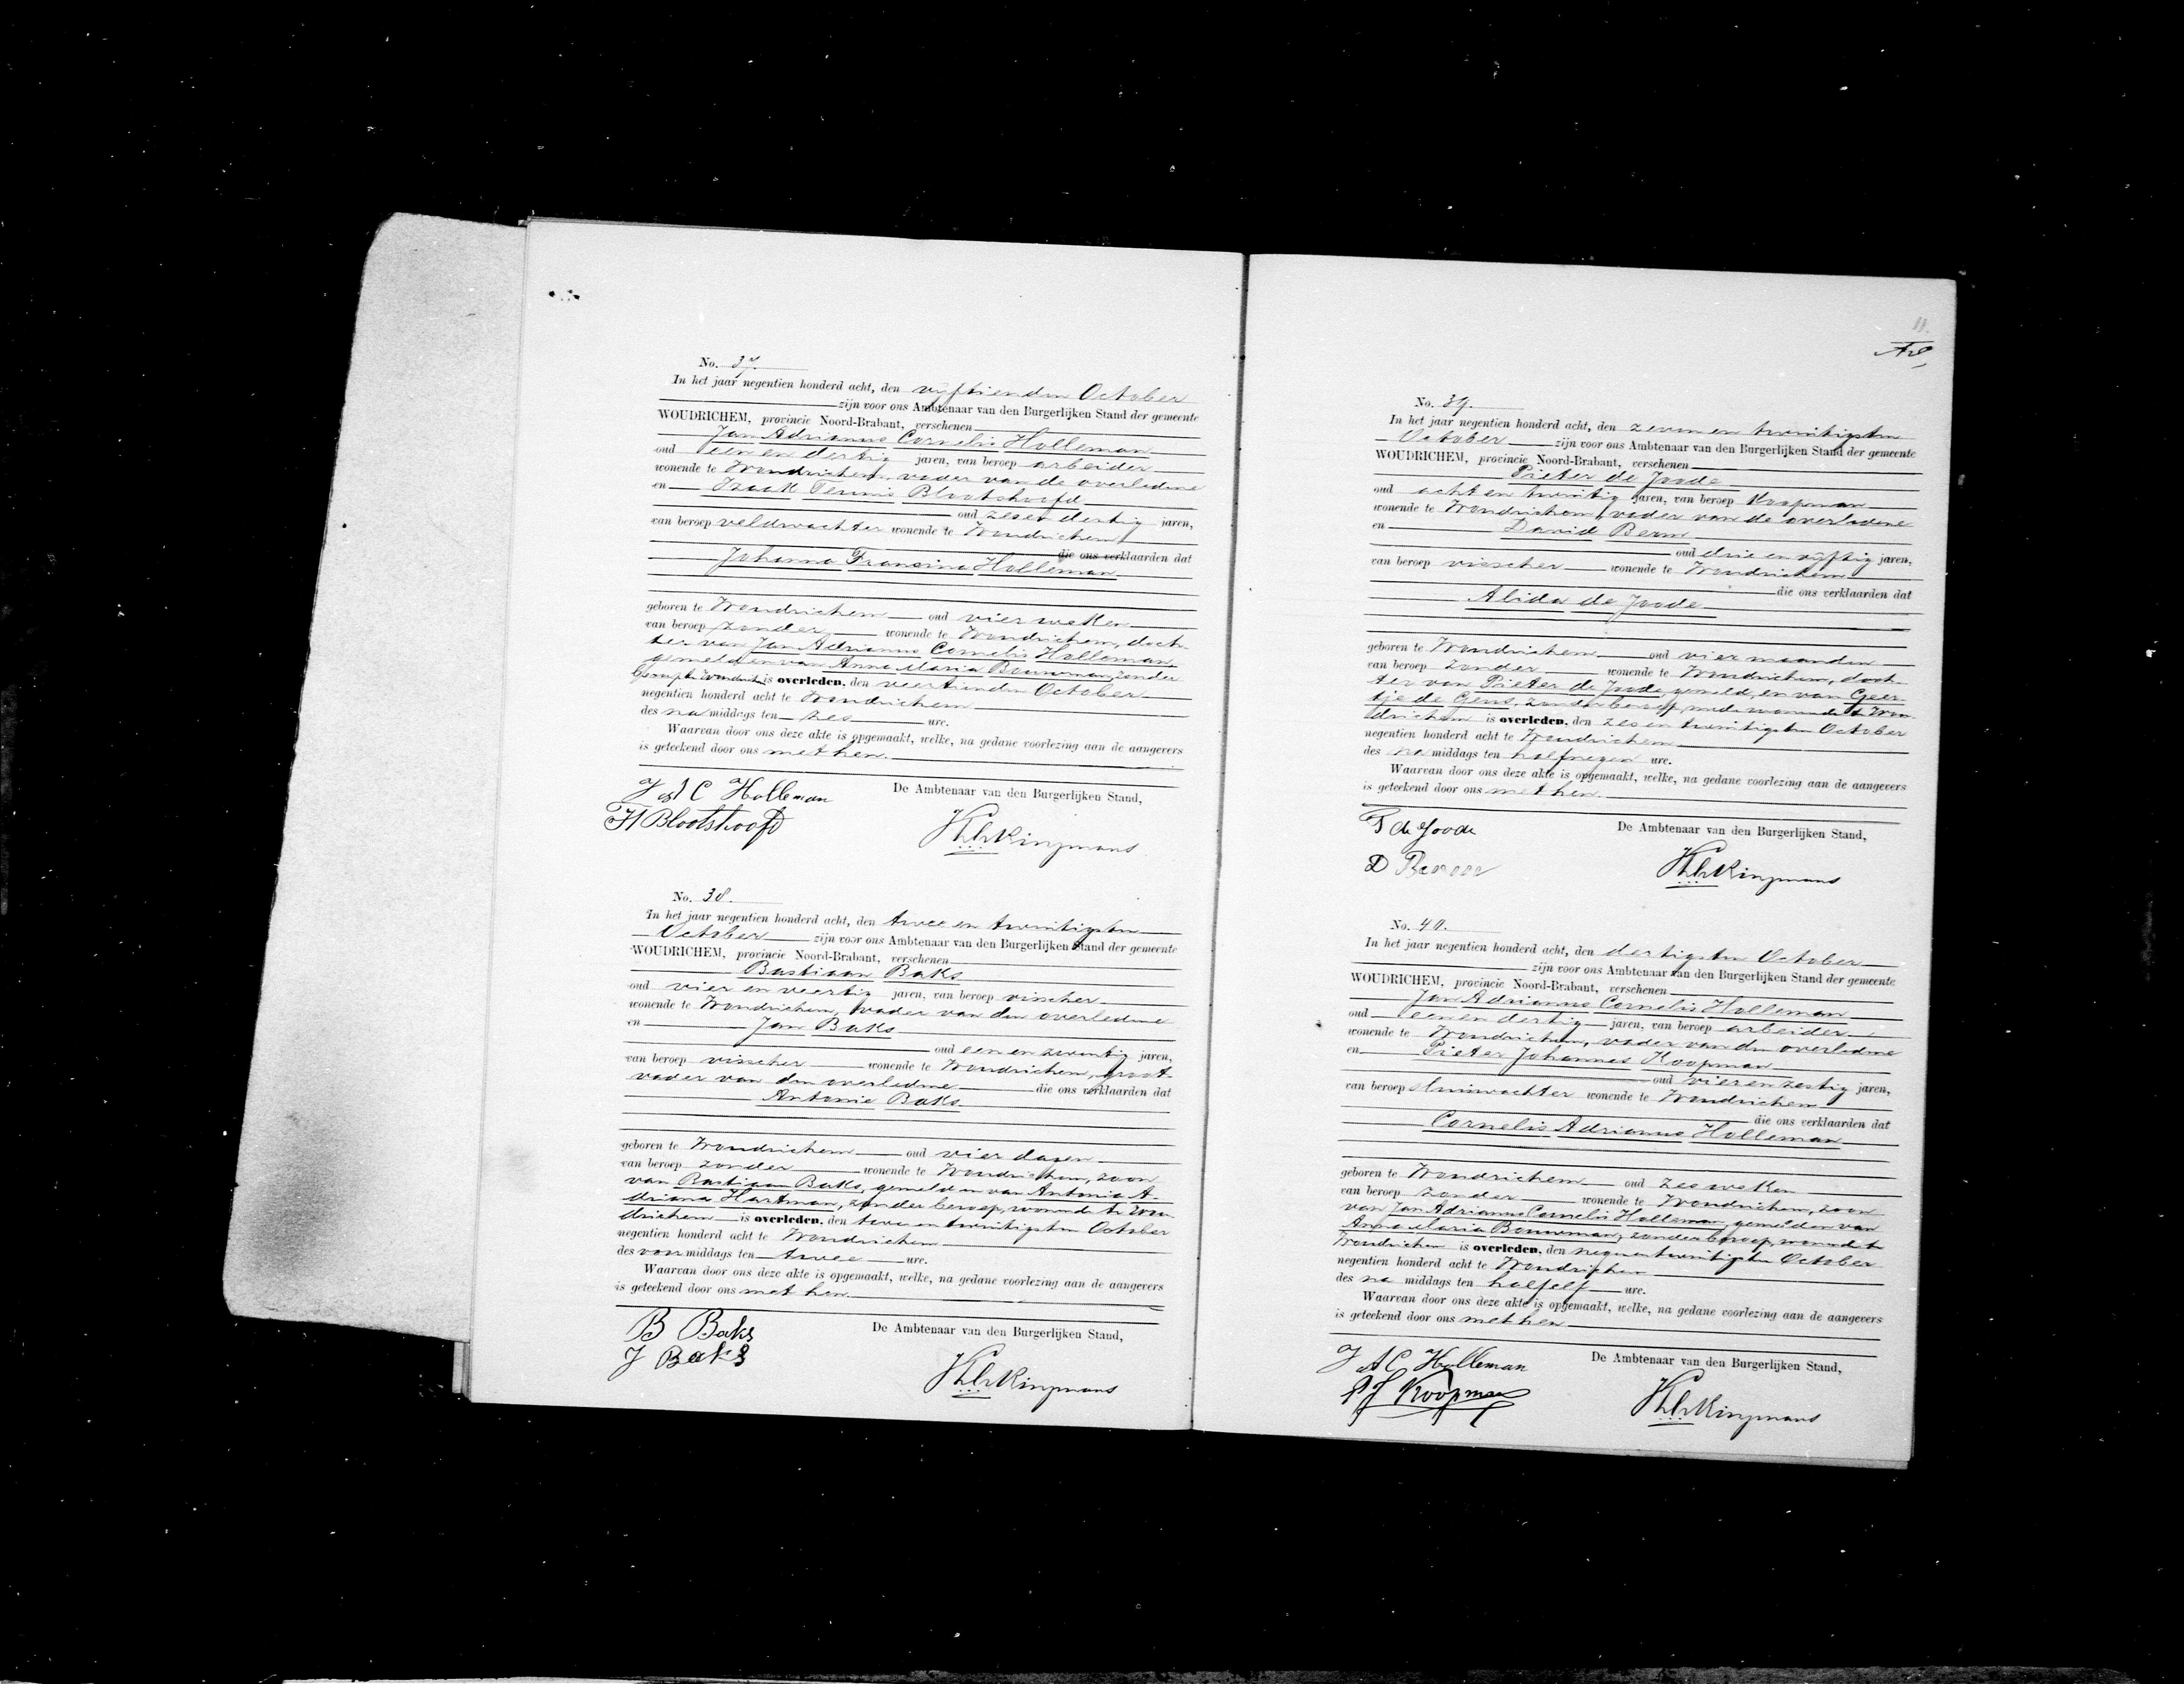 No. 37.
In het jaar negentien honderd acht, den vijftienden October
zijn voor ons Ambtenaar van den Burgerlijken Stand der gemeente
WOUDRICHEM, provincie Noord-Brabant, verschenen
Jan Adrianus Cornelis Holleman
oud een en dertig jaren, van beroep arbeider
wonende te Woudrichem, vader van de overledene
en Izaak Teunis Blootshoofd
oud zes en dertig jaren,
van beroep veldwachter wonende te Woudrichem
die ons verklaarden dat
Johanna Francina Holleman
geboren te Woudrichem oud vier weken
van beroep zonder wonende te Woudrichem, doch-
ter van Jan Adrianus Cornelis Holleman,
gemeld en van Anna Maria Bouwman, zonder
beroep te Woudrichem is overleden, den veertienden October
negentien honderd acht te Woudrichem
des na middags ten zes ure.
Waarvan door ons deze akte is opgemaakt, welke, na gedane voorlezing aan de aangevers
is geteekend door ons met hen.
J A C Holleman
De Ambtenaar van den Burgerlijken Stand,
Blootshoofd
No. 38.
In het jaar negentien honderd acht, den twee en twintigsten
October zijn voor ons Ambtenaar van den Burgerlijken Stand der gemeente
WOUDRICHEM, provincie Noord-Brabant, verschenen
Bastiaan Baks
oud vier en veertig jaren, van beroep visscher
wonende te Woudrichem, vader van den overledene
en Jan Baks
oud een en zeventig jaren,
van beroep visscher wonende te Woudrichem, groot-
vader van den overledene die ons verklaarden dat
Antonie Baks
geboren te Woudrichem oud vier dagen
van beroep zonder wonende te Woudrichem, zoon
van Bastiaan Baks, gemeld en van Antonia A-
driana Hartman, zonder beroep, wonende te Wou-
drichem is overleden, den twee en twintigsten October
negentien honderd acht te Woudrichem
des voormiddags ten twee ure.
Waarvan door ons deze akte is opgemaakt, welke, na gedane voorlezing aan de aangevers
is geteekend door ons met hen.
B Baks
De Ambtenaar van den Burgerlijken Stand,
J Baks
11.
No. 39.
In het jaar negentien honderd acht, den zeven en twintigsten
October zijn voor ons Ambtenaar van den Burgerlijken Stand der gemeente
WOUDRICHEM, provincie Noord-Brabant, verschenen
Pieter de Joode
oud acht en twintig jaren, van beroep Koopman
wonende te Woudrichem, vader van de overledene
en David
oud drie en vijftig jaren,
van beroep visscher wonende te Woudrichem
die ons verklaarden dat
Alida de Joode
geboren te Woudrichem oud vier maanden
van beroep zonder wonende te Woudrichem, doch-
ter van Pieter de Joode, gemeld, en van Geer-
tje de Geus, zonder beroep, mede wonende te Wou-
drichem is overleden, den zes en twintigsten October
negentien honderd acht te Woudrichem
des na middags ten half negen ure.
Waarvan door ons deze akte is opgemaakt, welke, na gedane voorlezing aan de aangevers
is geteekend door ons met hen.
P de Joode
De Ambtenaar van den Burgerlijken Stand,
D
No. 40.
In het jaar negentien honderd acht, den dertigsten October
zijn voor ons Ambtenaar van den Burgerlijken Stand der gemeente
WOUDRICHEM, provincie Noord-Brabant, verschenen
Jan Adrianus Cornelis Holleman
oud een en dertig jaren, van beroep arbeider
wonende te Woudrichem, vader van den overledene
en Pieter Johannes Koopman
oud vier en zestig jaren,
van beroep sluiswachter wonende te Woudrichem
die ons verklaarden dat
Cornelis Adrianus Holleman
geboren te Woudrichem oud zes weken
van beroep zonder wonende te Woudrichem, zoon
van Jan Adrianus Cornelis Holleman, gemeld en van
Anna Maria Bouwman, zonder beroep, wonende te
Woudrichem is overleden, den negenentwintigsten October
negentien honderd acht te Woudrichem
des na middags ten half elf ure.
Waarvan door ons deze akte is opgemaakt, welke, na gedane voorlezing aan de aangevers
is geteekend door ons met hen
J A C Holleman
De Ambtenaar van den Burgerlijken Stand,
P J Koopman